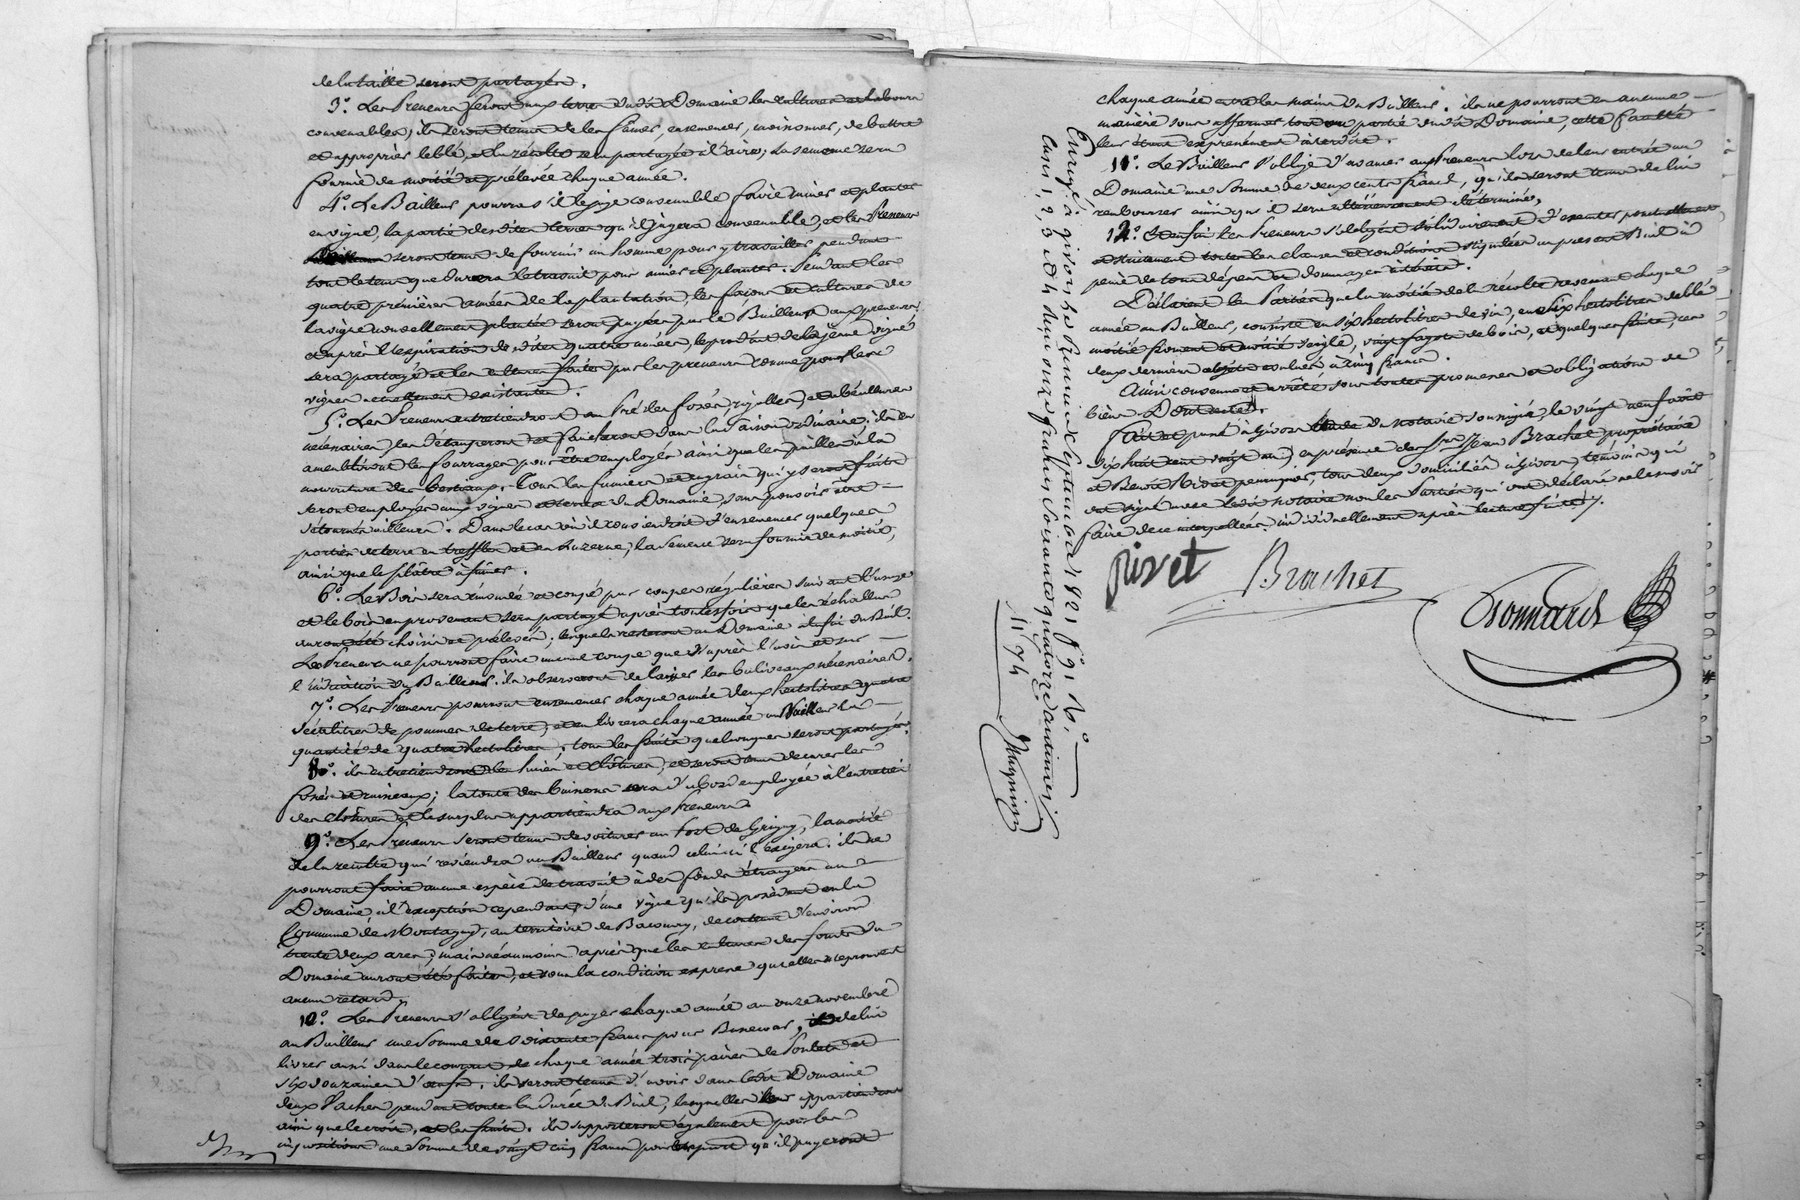 de la taille seront partagés.
3.º Les Preneurs feront aux terres dudit Domaine les cultures et labours
convenables; ils seront tenus de les fumer, ensemencer, moissonner, de battre
et approprier le blé, et la récolte sera partagée à l'aire; la semence sera
fournie de moitié et prélevée chaque année.
4.º Le Bailleur pourra s'il le juge convenable faire miner et planter
en vigne, la partie desdites terres qu'il jugera convenable, et les Preneurs
seront tenus de fournir un homme pour y travailler pendant
tout le tems que durera le travail pour miner et planter. Pendant les
quatre premières années de la plantation, les façons et cultures de
la vigne nouvellement plantée seront payées par le Bailleur aux preneurs,
et après l'expiration desdites quatre années, le produit de la jeune vigne
sera partagé et les cultures faites par les preneurs comme pour les
vignes actuellement existantes.
5.º Les Preneurs entretiendront au Pré les fossés, rigolles, et abreuvures
nécessaires, les étauperont et faucheront dans la saison ordinaire; ils en
ameubliront les fourrages pour être employés ainsi que les pailles à la
nourriture des bestiaux. Tous les fumiers et engrais qui y seront faits
seront employés aux vignes et terres du Domaine, sans pouvoir être
détournés ailleurs. Dans le cas où il conviendroit d'ensemencer quelques
parties de terre en treffle et en Luzerne, la semence sera fournie de moitié,
ainsi que le plâtre à fumer.
6.º Le Bois sera émondé et coupé par coupes régulières suivant l'usage
et le bois en provenant sera partagé après toutesfois que les échallas
auront été choisis et prélevés, lesquels resteront au Domaine à fin du Bail.
Les Preneurs ne pourront faire aucune coupe que d'après l'avis et sur
l'indication du Bailleur. ils observeront de laisser les baliveaux nécessaires.
7.º Les Preneurs pourront ensemencer chaque année deux hectolitres quatre
décalitres de pommes de terre, et en livrera chaque année au Bailleur la
quantité de quatre hectolitres; tous les fruits quelconques seront partagés.
8.º ils entretiendront les haies et clôtures, et seront tenus de curer les
fossés et ruisseaux; la tonte des buissons sera d'abord employée à l'entretien
des clôtures et le surplus appartiendra aux Preneurs
9.º Les Preneurs seront tenus de voiturer au Port de Grigny, la moitié
de la récolte qui reviendra au Bailleur quand celui-ci l'exigera. ils ne
pourront faire aucune espèce de travail à des fonds étrangers au
Domaine à l'exception cependant d'une vigne qu'ils possèdent en la
Commune de Montagny, au territoire de Bassenay, de contenue d'environ
trente deux ares; mais néanmoins après que les cultures des fonds du
Domaine auront été faites, et sous la condition expresse qu'elles n'éprouvent
aucun retard.
10.º Les Preneurs s'obligent de payer chaque année au onze novembre
au Bailleur une somme de soixante francs pour Basecour, et de lui
livrer aussi dans le courant de chaque année trois paires de Poulets et
six douzaines d'œufs. ils seront tenus d'avoir dans ledit Domaine
deux Vaches pendant toute la durée du Bail, lesquelles leur appartiendront
ainsi que le croît, et les fruits. ils supporteront également pour les
impositions une somme de vingt cinq francs pour leur part qu'ils payeront
chaque année entre les mains du Bailleur. ils ne pourront en aucune
manière sous affermer tout ou partie dudit Domaine, cette faculté
leur étant expressément interdite.
11.º Le Bailleur s'oblige d'avancer aux Preneurs lors de leur entrée au
Domaine une somme de deux cents francs, qu'ils seront tenus de lui
rembourser ainsi que il sera ultérieurement déterminé.
12.º Et enfin les Preneurs s'obligent solidairement d'exécuter ponctuellement
et strictement toutes les clauses et conditions stipulées au présent Bail à
peine de tous dépens et dommages intérêts.
Déclarent les Parties que la moitié de la récolte revenant chaque
année au Bailleur, consiste en six hectolitres de vin, en six hectolitres de blé
moitié froment et moitié seigle, vingt fagots de bois, et quelques fruits, ces
deux derniers objets évalués à cinq francs.
Ainsi convenu et arrêté sous toutes promesses et obligations de
biens. Dont acte.
Fait et passé à Givors Etude du notaire soussigné, le vingt neuf août
dix huit cent vingt un, en présence des srs Jean Brachet propriétaire
et Benoît Rivet perruquier, tous deux domiciliés à Givors, témoins qui
ont signé avec ledit notaire non les Parties qui ont déclaré ne le savoir
faire de ce interpellées individuellement après lecture faite.
Rivet Brachet Bonnard
Enregé à givors le premier Septembre 1821 fº 91 Vº.
Cases 1, 2, 3 et 4 Reçu onze francs soixante quatorze centimes
11 74 Magnin